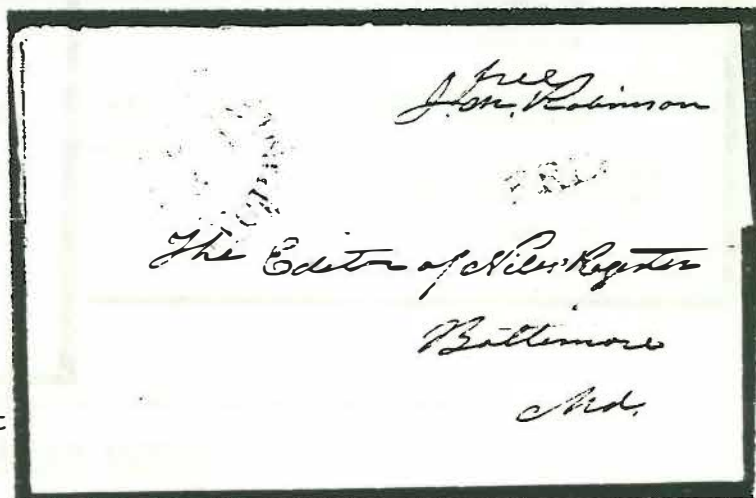 free
J. M. Robinson
FREE
The Editor of Niles' Register
Baltimore
Md.